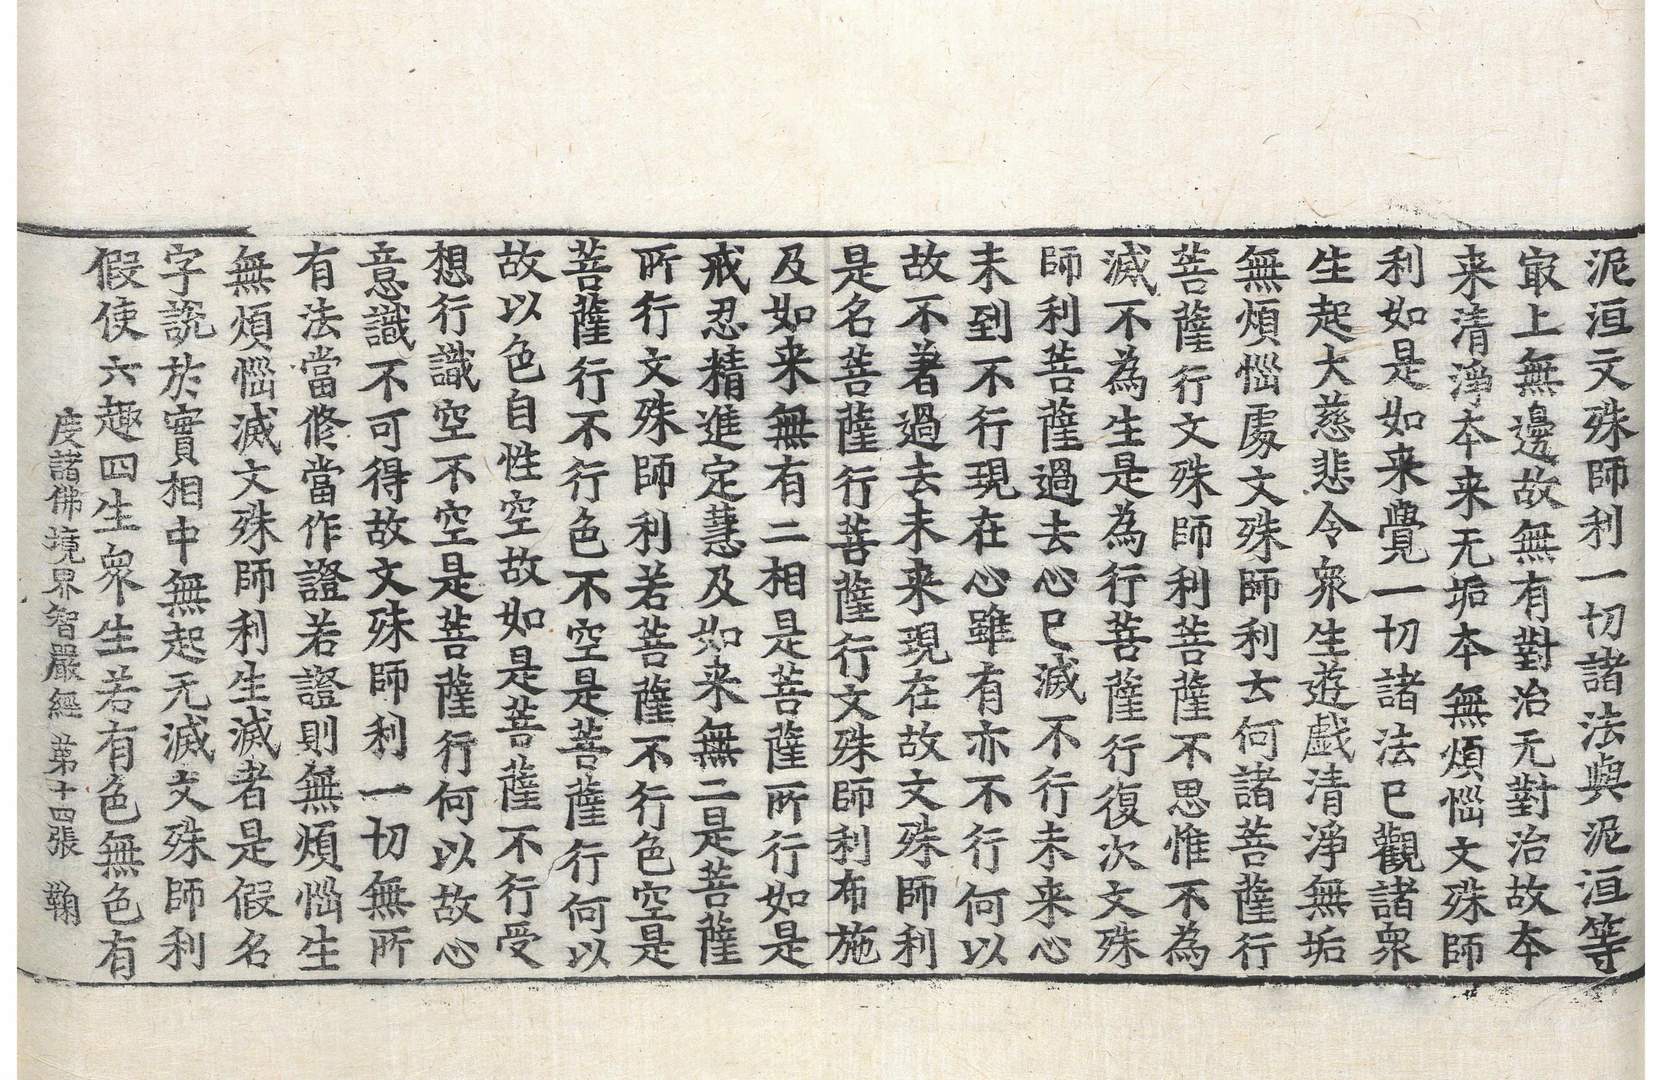 泥洹文殊師利一切諸法與泥洹等
㝡上無邊故無有對治无對治故本
来清淨本来无垢本無煩惱文殊師
利如是如来覺一切諸法已觀諸衆
生起大慈悲令衆生遊戱清淨無垢
無煩惱處文殊師利云何諸菩薩行
菩薩行文殊師利菩薩不思惟不為
滅不為生是為行菩薩行復次文殊
師利菩薩過去心已滅不行未来心
未到不行現在心雖有亦不行何以
故不著過去未来現在故文殊師利
是名菩薩行菩薩行文殊師利布施
及如来無有二相是菩薩所行如是
戒忍精進定慧及如来無二是菩薩
所行文殊師利若菩薩不行色空是
菩薩行不行色不空是菩薩行何以
故以色自性空故如是菩薩不行受
想行識空不空是菩薩行何以故心
意識不可得故文殊師利一切無所
有法當修當作證若證則無煩惱生
無煩惱滅文殊師利生滅者是假名
字說於實相中無起无滅文殊師利
假使六趣四生衆生若有色無色有
度諸佛境界智嚴經 第十四張 鞠